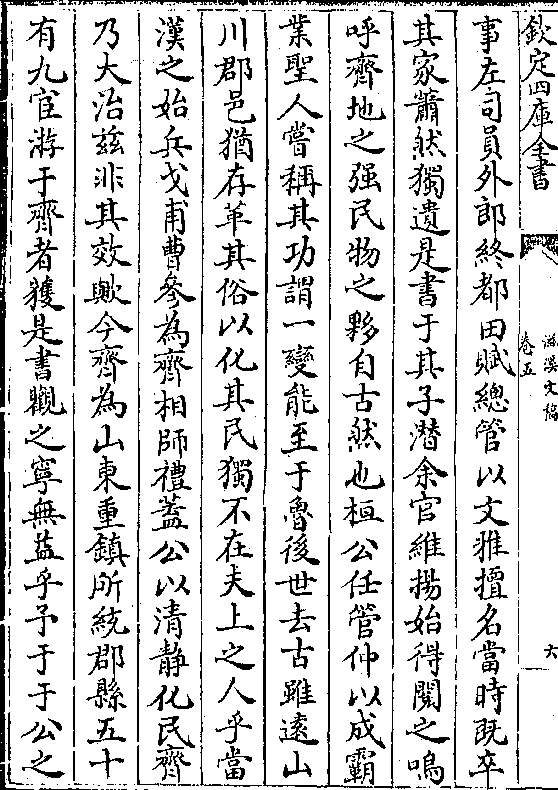 欽定四庫全書
滋溪文稿
卷五
六
事左司員外郎終都田賦總管以文雅擅名當時既卒
其家蕭然獨遺是書于其子潛余官維揚始得閱之嗚
呼齊地之强民物之夥自古然也桓公任管仲以成霸
業聖人嘗稱其功謂一變能至于魯後世去古雖遠山
川郡邑猶存革其俗以化其民獨不在夫上之人乎當
漢之始兵戈甫曹參為齊相師禮蓋公以清靜化民齊
乃大治兹非其效歟今齊為山東重鎮所統郡縣五十
有九宦游于齊者獲是書觀之寧無益乎予于于公之